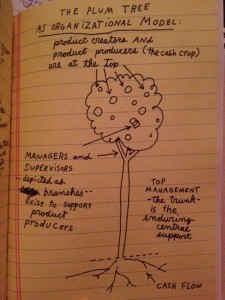 THE PLUM TREE
AS ORGANIZATIONAL MODEL:
product creators AND
product producers (the cash crop)
are at the top
MANAGERS and
SUPERVISORS
depicted as
branches--
exist to support
product
producers
TOP
MANAGEMENT
-the trunk-
is the
enduring
central
support
CASH FLOW